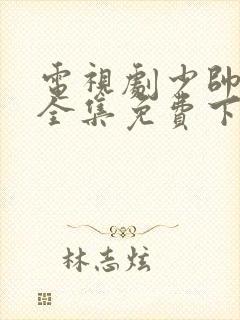 電視劇少帥
全集免費下
林志炫